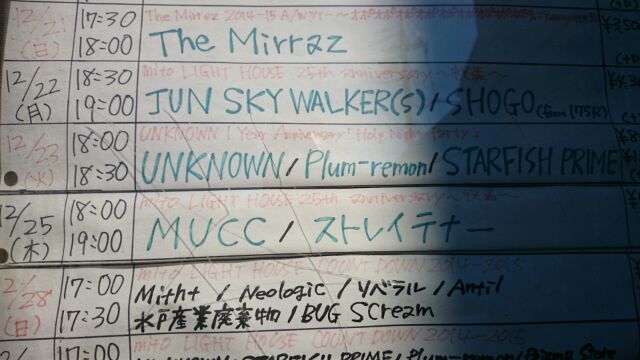 12/21 17:30 The Mirraz 2014-15 A/W ツアー～
(日) 18:00 The Mirraz
¥3,50
12/22 18:30 mito LIGHT HOUSE 25th anniversary
(月) 19:00 JUN SKY WALKER(S) / SHOGO (from 175R)
12/23 18:00 UNKNOWN 1 Year Anniversary「Holy Night Party」
(火) 18:30 UNKNOWN / Plum-remon / STARFISH PRIME
12/25 18:00 mito LIGHT HOUSE 25th anniversary
(木) 19:00 MUCC / ストレイテナー
2/28 17:00 mito LIGHT HOUSE COUNT DOWN 2014-2015
Mith+ / Neologic / リベラル / Antil
(日) 17:30 水戸産業廃棄物 / BUG SCream
17:00 mito LIGHT HOUSE COUNT DOWN 2014-2015
UNKNOWN / STARFISH PRIME / Plum-remon /